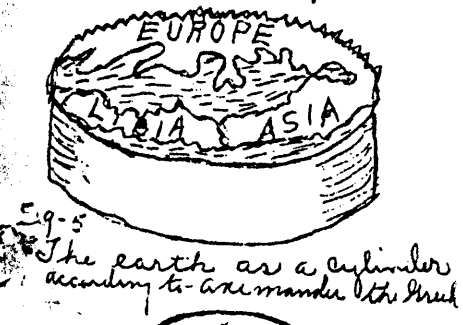 EUROPE
LIBIA ASIA
Fig-5
The earth as a cylinder
according to-aximander the Greek